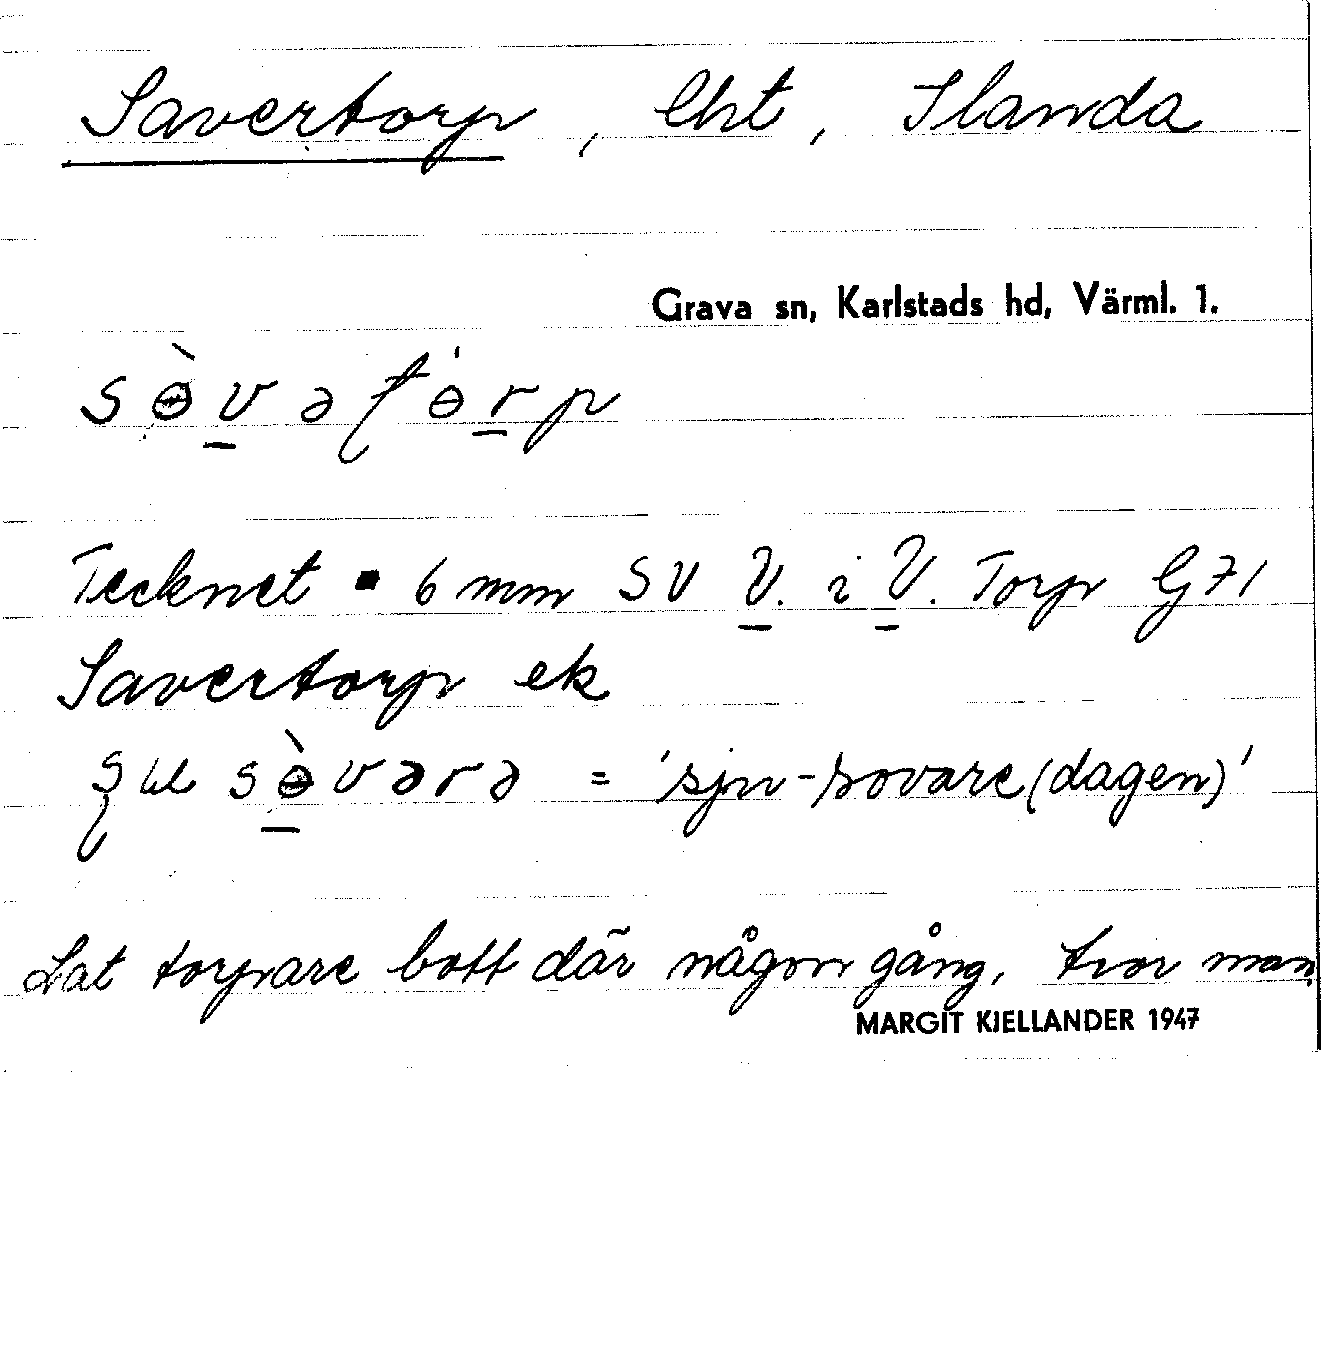 Savertorp, lht, Ilanda
Grava sn, Karlstads hd, Värml. 1.
sɵ̀vəƭɵ́rp
Tecknet ▪ 6 mm SV V. i V. Torp G 71
Savertorp ek
sɵ̀vərə = 'sju-sovare (dagen)'
Lat torpare bott där någon gång, tror man.
MARGIT KJELLANDER 1947